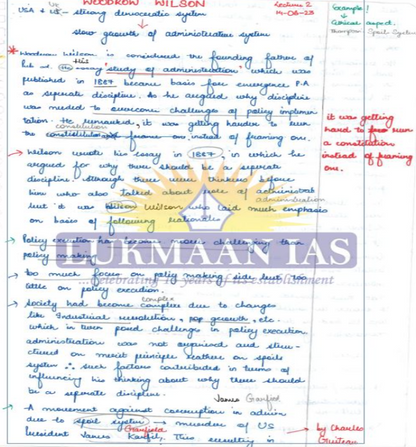 WOODROW WILSON
Lecture 2
14-08-23
UK
USA & US - strong democratic system
↓
slow growth of administrative system
* Woodrow Wilson is considered the founding father of
Pub. A. His essay 'study of administration' which was
published in 1887 became basis for emergence P.A
as separate discipline. As he argued, why discipline
was needed to overcome challenges of policy implemen
tation. He remarked, it was getting harder to run
the constitution instead of framing one.
→ Wilson wrote his essay in 1887, in which he
argued for why there should be a separate
discipline. Although there were thinkers before
him who also talked about role of administrat
administration
but it was Wilson who laid much emphasis
on basis of following rationales
→ Policy execution has become more challenging than
policy making.
→ Too much focus on policy making side but too
little on policy execution.
complex
→ Society had become complex due to changes
like Industrial revolution, pop growth, etc.
which in turn posed challenges in policy execution
administration was not organised and struc-
ctured on merit principle rather on spoils
system ∴ such factors contributed in terms of
influencing his thinking about why there should
be a separate discipline.
James Garfield
- A movement against corruption in admin
due to spoil system → murder of US
Garfield
President James
Example!
↓
Ethical aspect.
Spoil System
it was getting
hard to run
a constitution
instead of framing
one.
→ by Charles
Guiteau
LUKMAAN IAS
...celebrating 18 years of its establishment